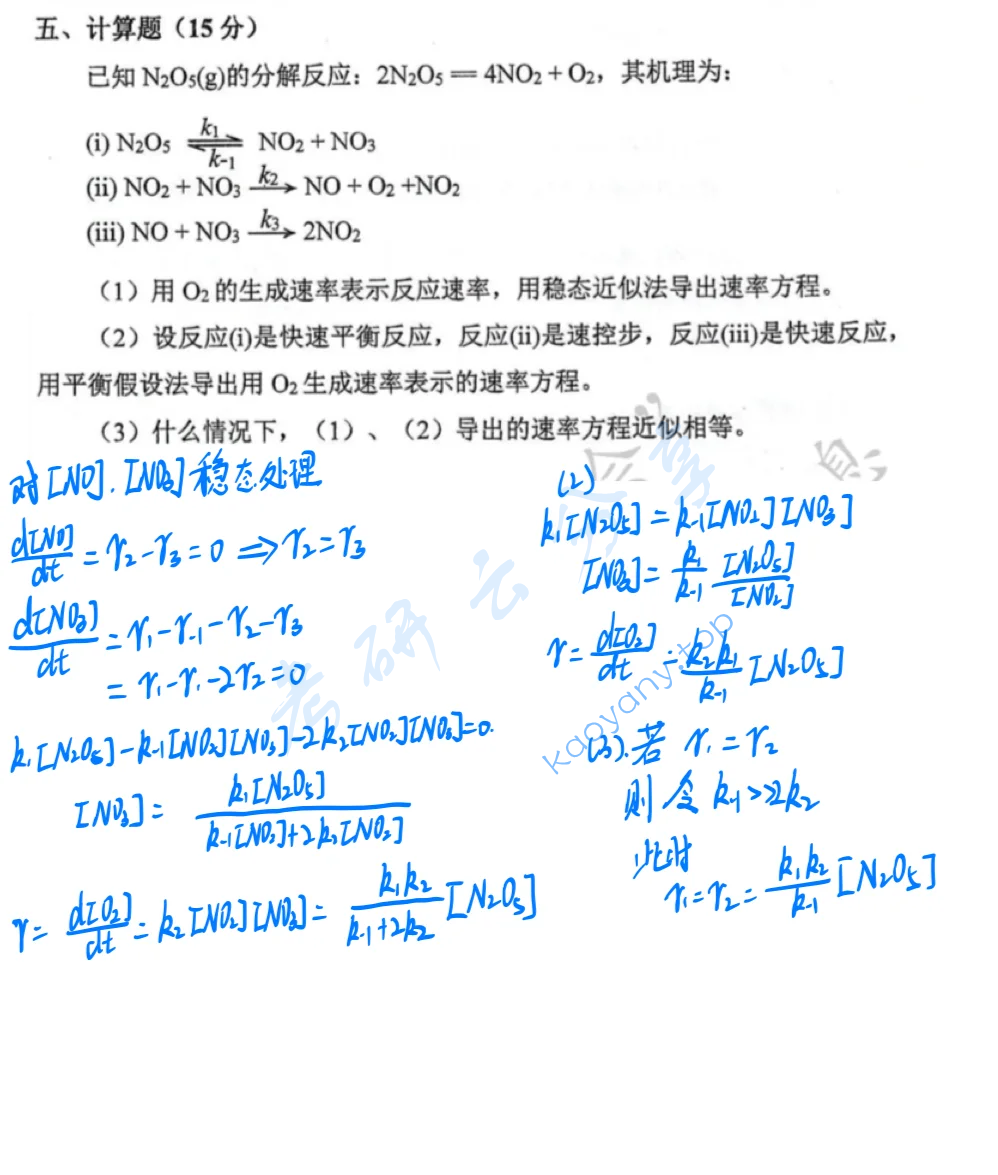 五、计算题（15 分）
已知 N₂O₅(g)的分解反应：2N₂O₅ ══ 4NO₂ + O₂，其机理为：
(i) N₂O₅ ⇌ NO₂ + NO₃ k₁ k₋₁
(ii) NO₂ + NO₃ —k₂→ NO + O₂ +NO₂
(iii) NO + NO₃ —k₃→ 2NO₂
（1）用 O₂ 的生成速率表示反应速率，用稳态近似法导出速率方程。
（2）设反应(i)是快速平衡反应，反应(ii)是速控步，反应(iii)是快速反应，
用平衡假设法导出用 O₂ 生成速率表示的速率方程。
（3）什么情况下，（1）、（2）导出的速率方程近似相等。
对[NO].[NO₃]稳态处理
d[NO]/dt = r₂-r₃=0 ⟹ r₂=r₃
d[NO₃]/dt = r₁-r₋₁-r₂-r₃
= r₁-r₋₁-2r₂=0
k₁[N₂O₅]-k₋₁[NO₂][NO₃]-2k₂[NO₂][NO₃]=0.
[NO₃]= k₁[N₂O₅]/(k₋₁[NO₂]+2k₂[NO₂])
r= d[O₂]/dt = k₂[NO₂][NO₃]= k₁k₂/(k₋₁+2k₂) [N₂O₅]
(2)
k₁[N₂O₅]=k₋₁[NO₂][NO₃]
[NO₃]= k₁/k₋₁ [N₂O₅]/[NO₂]
r= d[O₂]/dt = k₂k₁/k₋₁ [N₂O₅]
(3).若 r₁=r₂
则令 k₋₁>>2k₂
此时
r₁=r₂= k₁k₂/k₋₁ [N₂O₅]
考研云分享
kaoyany.top